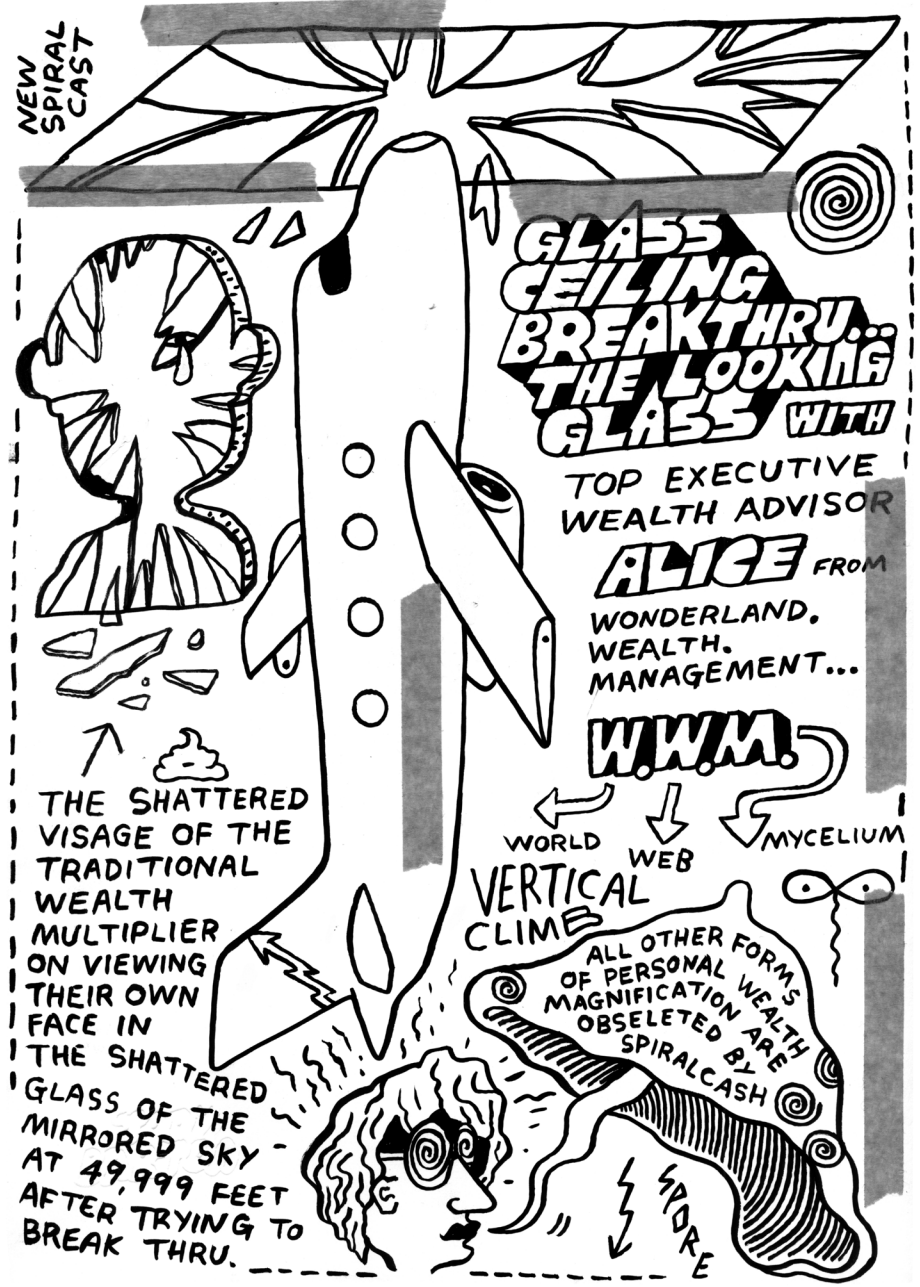 NEW
SPIRAL
CAST
GLASS
CEILING
BREAKTHRU...
THE LOOKING
GLASS WITH
TOP EXECUTIVE
WEALTH ADVISOR
ALICE FROM
WONDERLAND.
WEALTH.
MANAGEMENT...
W.W.M.
WORLD
WEB
MYCELIUM
VERTICAL
CLIMB
ALL OTHER FORMS
OF PERSONAL WEALTH
MAGNIFICATION ARE
OBSELETED BY
SPIRALCASH
SPORE
THE SHATTERED
VISAGE OF THE
TRADITIONAL
WEALTH
MULTIPLIER
ON VIEWING
THEIR OWN
FACE IN
THE SHATTERED
GLASS OF THE
MIRRORED SKY
AT 49,999 FEET
AFTER TRYING TO
BREAK THRU.